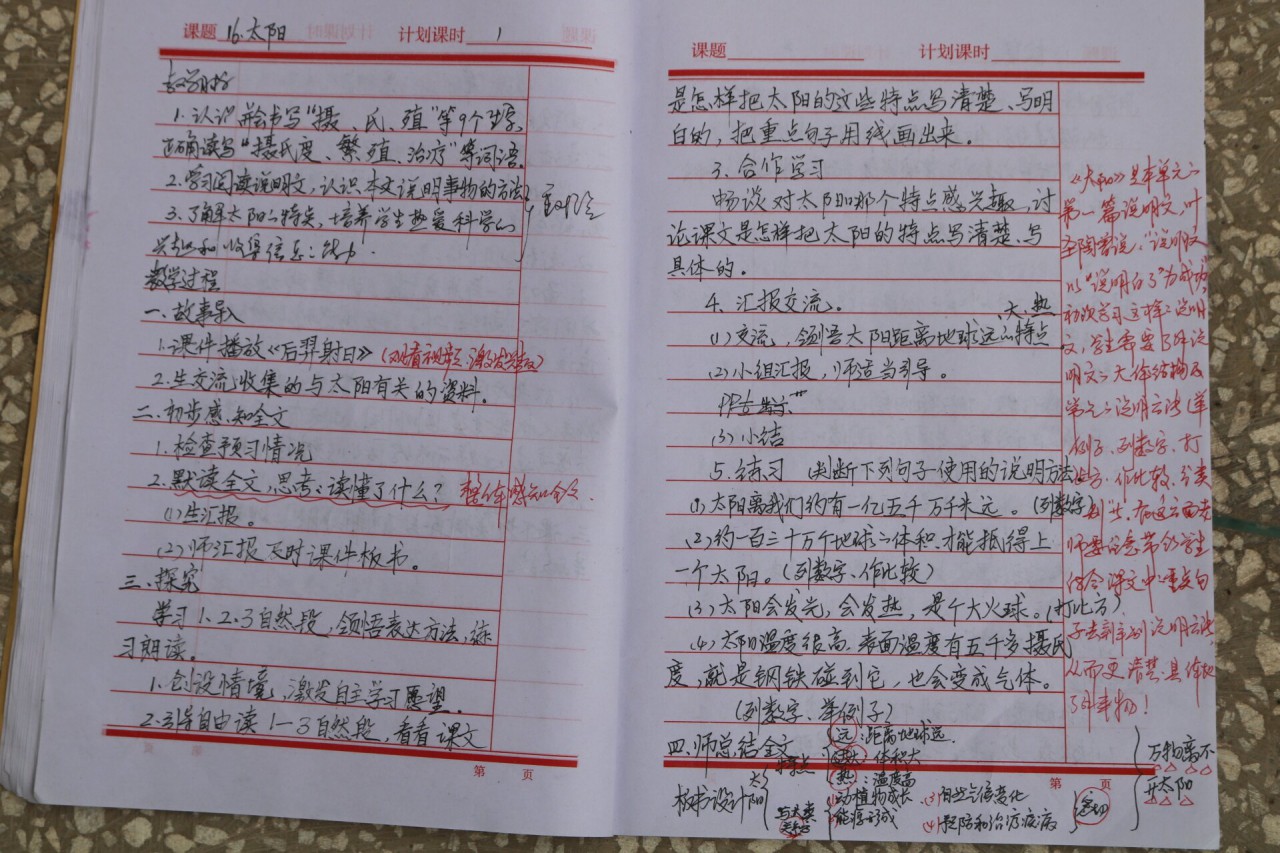 课题 16.太阳 计划课时 1
教学目标
1.认识并会书写"摄、氏、殖"等9个生字,
正确读写"摄氏度、繁殖、治疗"等词语。
2.学习阅读说明文,认识本文说明事物的方法
3.了解太阳的特点,培养学生热爱科学的
兴趣和
教学过程
一.故事导入
1.课件播放《后羿射日》(观看视频 激发兴趣)
2.生交流收集的与太阳有关的资料。
二.初步感知全文
1.检查预习情况
2.默读全文,思考:读懂了什么? 整体感知全文.
(1)生汇报。
(2)师汇报及时课件板书。
三.探究
学习1.2.3自然段,领悟表达方法,练
习朗读。
1.创设情境,激发自主学习愿望。
2.引导自由读1-3自然段,看看课文
第 页
课题 计划课时
是怎样把太阳的这些特点写清楚、写明
白的,把重点句子用线画出来。
3.合作学习
畅谈对太阳哪个特点感兴趣,讨
论课文是怎样把太阳的特点写清楚、写
具体的。
4.汇报交流。
(1)交流,领悟太阳距离地球远、大、热的特点
(2)小组汇报,师适当引导。
(3)小结
5.练习 (判断下列句子使用的说明方法)
(1)太阳离我们约有一亿五千万千米远。(列数字)
(2)约一百三十万个地球的体积才能抵得上
一个太阳。(列数字、作比较)
(3)太阳会发光,会发热,是个大火球。(打比方)
(4)太阳温度很高,表面温度有五千多摄氏
度,就是钢铁碰到它,也会变成气体。
(列数字、举例子)
四.师总结全文
板书设计 太阳
特点
远:距离地球远.
大:体积大
热:温度高
动植物成长
能源形成
(3)自然气候变化
(4)预防和治疗疾病
密切
万物离不
开太阳
第 页
《太阳》是本单元的
第一篇说明文,叶
圣陶曾说,"说明文
以'说明白了'为成功"
初次学习这样的说明
文,学生需要了解说
明文的大体结构及
单元的说明方法(举
例子、列数字、打
比方、作比较、分类
别)
师要注意带领学生
结合课文中重点句
子去辨别说明方法,
从而更清楚、具体地
了解事物!